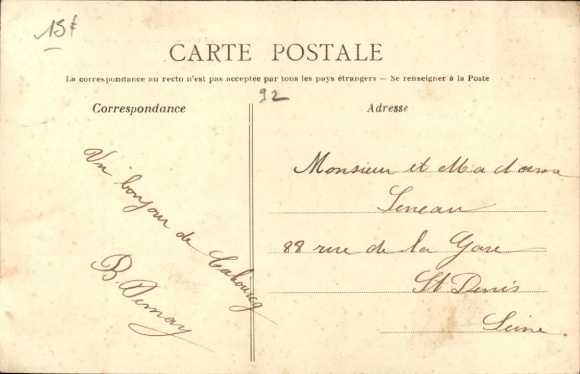 15f
CARTE POSTALE
La correspondance au recto n'est pas acceptée par tous les pays étrangers — Se renseigner à la Poste
92
Correspondance
Un bonjour de Cabourg
B.
Adresse
Monsieur et Madame
Leneau
88 rue de la Gare
St Denis
Seine